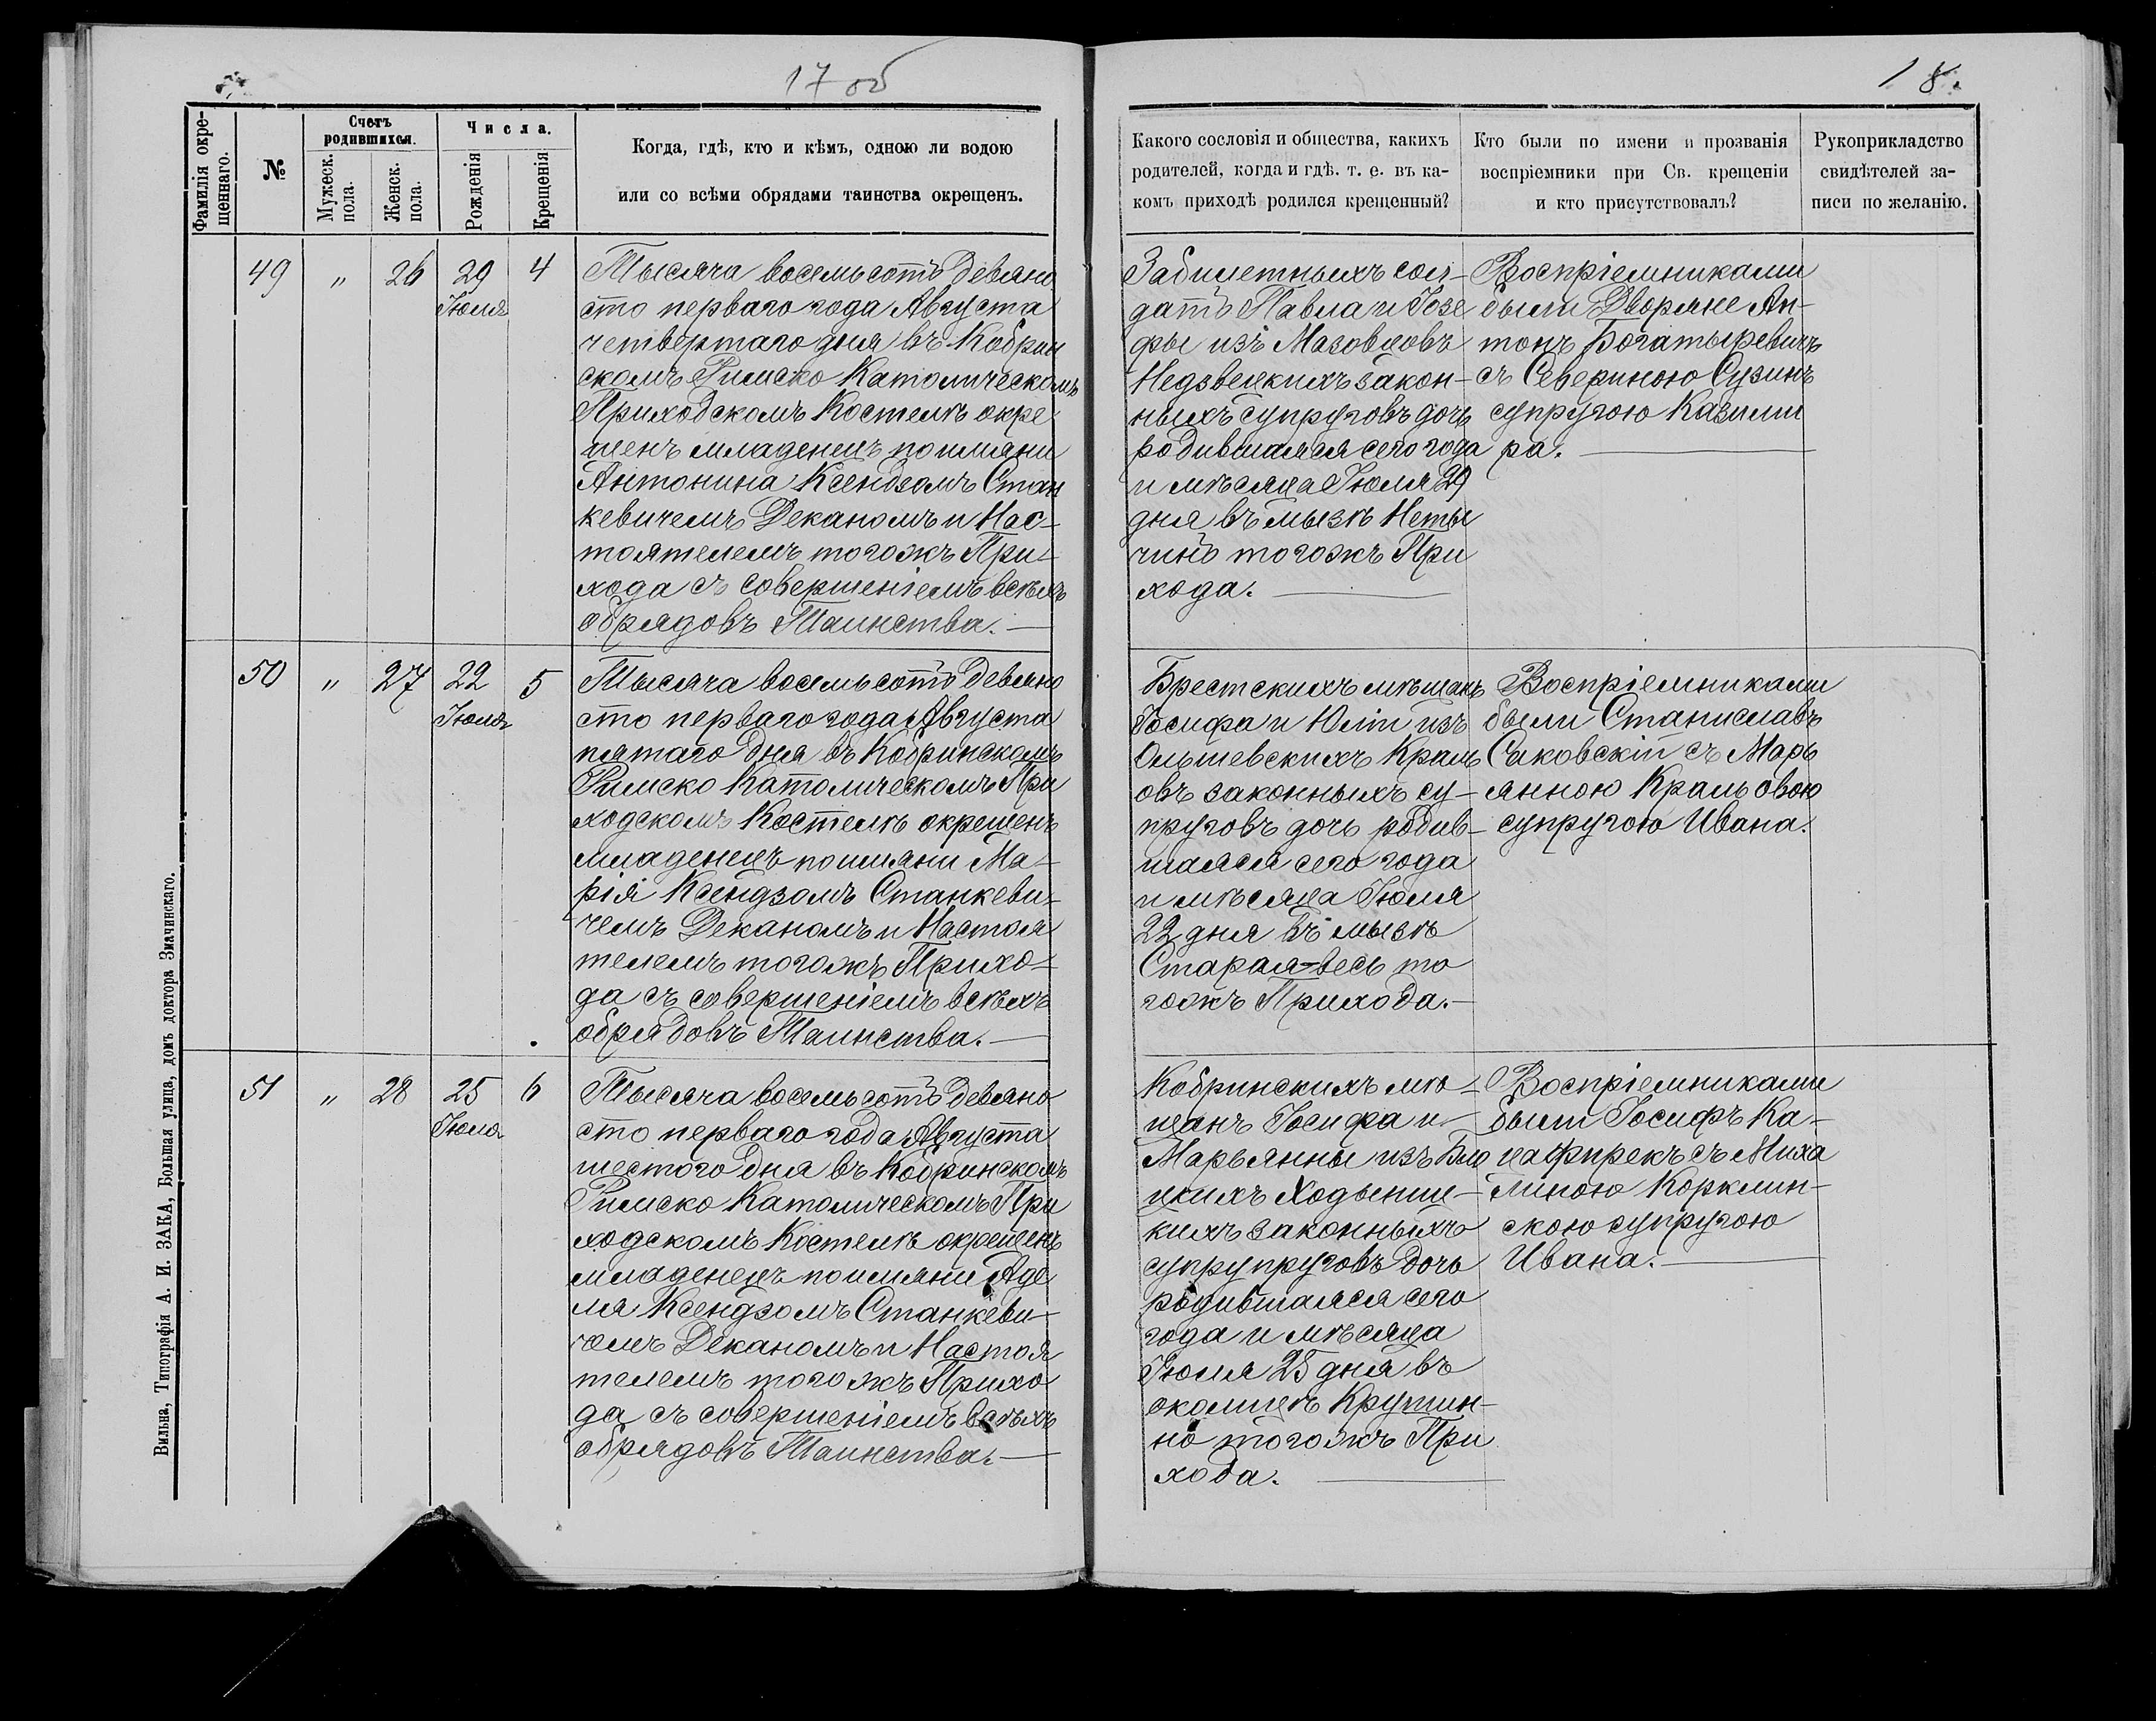 17 об
18.
Фамилія окрещеннаго.
№
Счетъ родившихся.
Мужеск. пола.
Женск. пола.
Числа.
Рожденія
Крещенія
Когда, гдѣ, кто и кѣмъ, одною ли водою
или со всѣми обрядами таинства окрещенъ.
Какого сословія и общества, какихъ
родителей, когда и гдѣ. т. е. въ ка-
комъ приходѣ родился крещенный?
Кто были по имени и прозванія
воспріемники при Св. крещеніи
и кто присутствовалъ?
Рукоприкладство
свидѣтелей за-
писи по желанію.
49 " 26 29 Іюля 4
Тысяча восемьсотъ девяно
сто перваго года Августа
четвертаго дня въ Кобрин
скомъ Римско Католическомъ
Приходскомъ Костелѣ окре
щенъ младенецъ поимяни
Антонина Ксендзомъ Стан
кевичемъ Деканомъ и Нас-
тоятелемъ тогожъ При-
хода съ совершеніемъ всѣхъ
обрядовъ Таинства.
Забилетныхъ сол-
датъ Павла и Іозе
фы изъ Мазовцовъ
Недзвецкихъ закон-
ныхъ супруговъ дочь
родившаяся сего года
и мѣсяца Іюля 29
дня въ мызѣ Неты
чинъ тогожъ При
хода.
Воспріемниками
были Дворяне Ан-
тонъ Богатыревичъ
съ Севериною Сузинъ
супругою Казими
ра.
50 " 27 22 Іюля 5
Тысяча восемьсотъ девяно
сто перваго года Августа
пятаго дня въ Кобринскомъ
Римско Католическомъ При
ходскомъ Костелѣ окрещенъ
младенецъ поимяни Ма-
рія Ксендзомъ Станкеви-
чемъ Деканомъ и Настоя
телемъ тогожъ Прихо-
да съ совершеніемъ всѣхъ
обрядовъ Таинства.
Брестскихъ мѣщанъ
Іосифа и Юліи изъ
Ольшевскихъ Краль
овъ законныхъ су-
пруговъ дочь родив-
шаяся сего года
и мѣсяца Іюля
22 дня въ мызѣ
Старая-весь то
гожъ Прихода.
Воспріемниками
были Станиславъ
Саковскій съ Марь
янною Кральовою
супругою Ивана.
51 " 28 25 Іюля 6
Тысяча восемьсотъ девяно
сто перваго года Августа
шестого дня въ Кобринскомъ
Римско Католическомъ При
ходскомъ Костелѣ окрещенъ
младенецъ поимяни Аде
ля Ксендзомъ Станкеви-
чомъ Деканомъ и Настоя
телемъ тогожъ Прихо
да съ совершеніемъ всѣхъ
обрядовъ Таинства.
Кобринскихъ мѣ-
щанъ Іосифа и
Марьянны изъ
цкихъ Ходынец-
кихъ законныхъ
супрупруговъ дочь
родившаяся сего
года и мѣсяца
Іюля 25 дня въ
околицѣ Крушин-
но тогожъ При
хода.
Воспріемниками
были Іосифъ Ка-
съ Миха
линою Корклин-
скою супругою
Ивана.
Вильна, Типографія А. И. ЗАКА, Большая улица, домъ доктора Значинскаго.